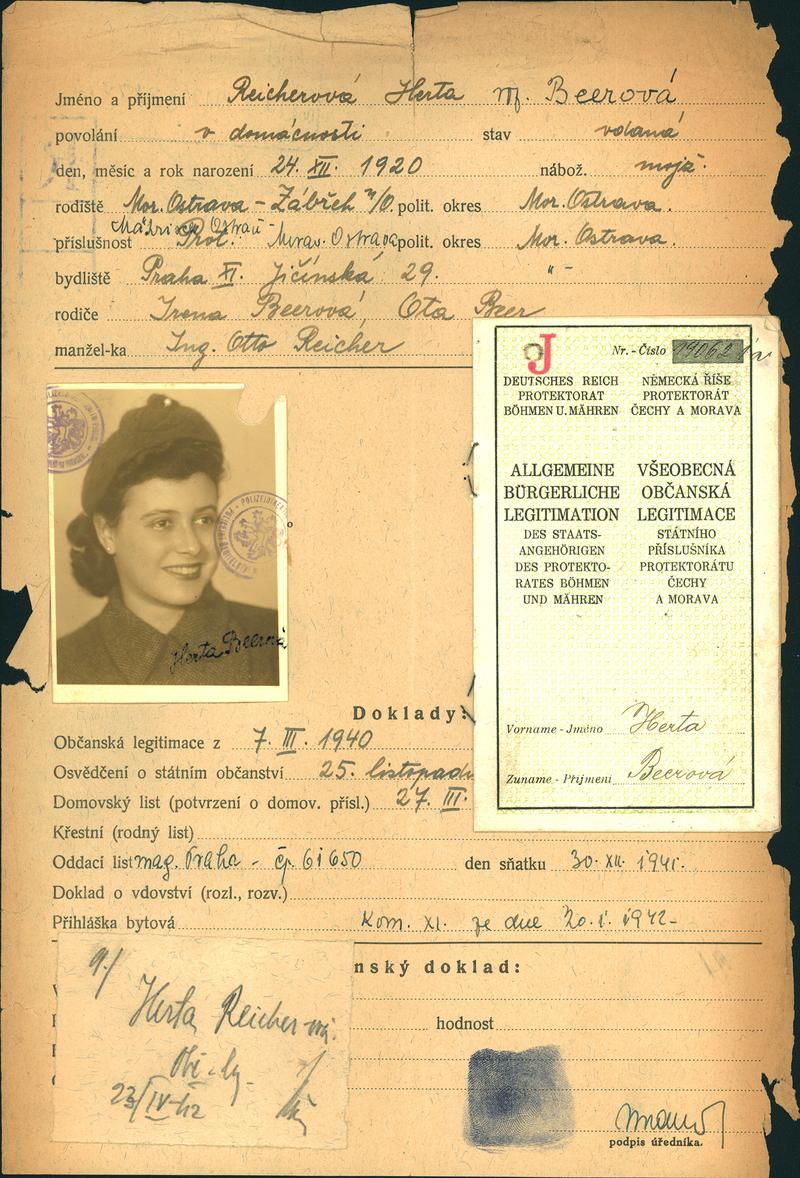 Jméno a příjmení Reicherová Herta roz. Beerová
povolání v domácnosti stav vdaná
den, měsíc a rok narození 24. XII. 1920 nábož. mojž.
rodiště Mor. Ostrava - Zábřeh n/O. polit. okres Mor. Ostrava.
Mährisch Ostrau -
příslušnost Prot. Morav. Ostrava polit. okres Mor. Ostrava.
bydliště Praha XI. Jičínská 29. " -
rodiče Irena Beerová, Ota Beer
manžel-ka Ing. Otto Reicher
J
Nr. - Číslo
DEUTSCHES REICH NĚMECKÁ ŘÍŠE
PROTEKTORAT PROTEKTORÁT
BÖHMEN U. MÄHREN ČECHY A MORAVA
ALLGEMEINE VŠEOBECNÁ
BÜRGERLICHE OBČANSKÁ
LEGITIMATION LEGITIMACE
DES STAATS- STÁTNÍHO
ANGEHÖRIGEN PŘÍSLUŠNÍKA
DES PROTEKTO- PROTEKTORÁTU
RATES BÖHMEN ČECHY
UND MÄHREN A MORAVA
Vorname - Jméno Herta
Zuname - Příjmení Beerová
Herta Beerová
Doklady:
Občanská legitimace z 7. III. 1940
Osvědčení o státním občanství 25. listopadu
Domovský list (potvrzení o domov. přísl.) 27. III.
Křestní (rodný list)
Oddací list mag. Praha - čp. 61650 den sňatku 30. XII. 1941.
Doklad o vdovství (rozl., rozv.)
Přihláška bytová Kom. XI. ze dne 20. I. 1942 -
nský doklad:
hodnost
9./
Herta Reicherová
23/IV-42
podpis úředníka.